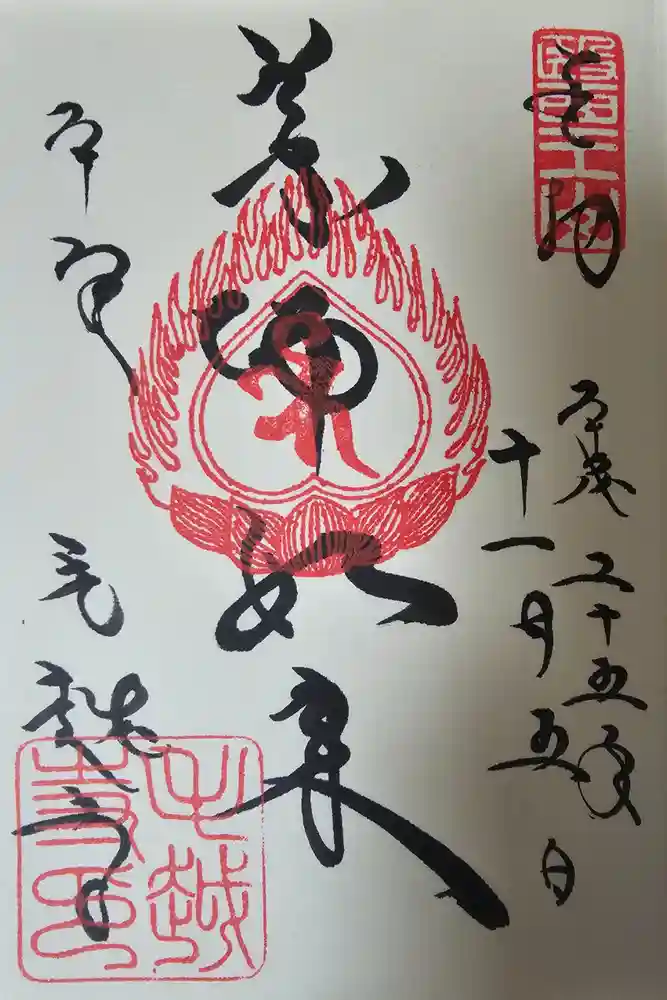 醫王山
奉拝
平成二十五年
十一月五日
薬師如来
平泉
毛越寺
毛越
寺印